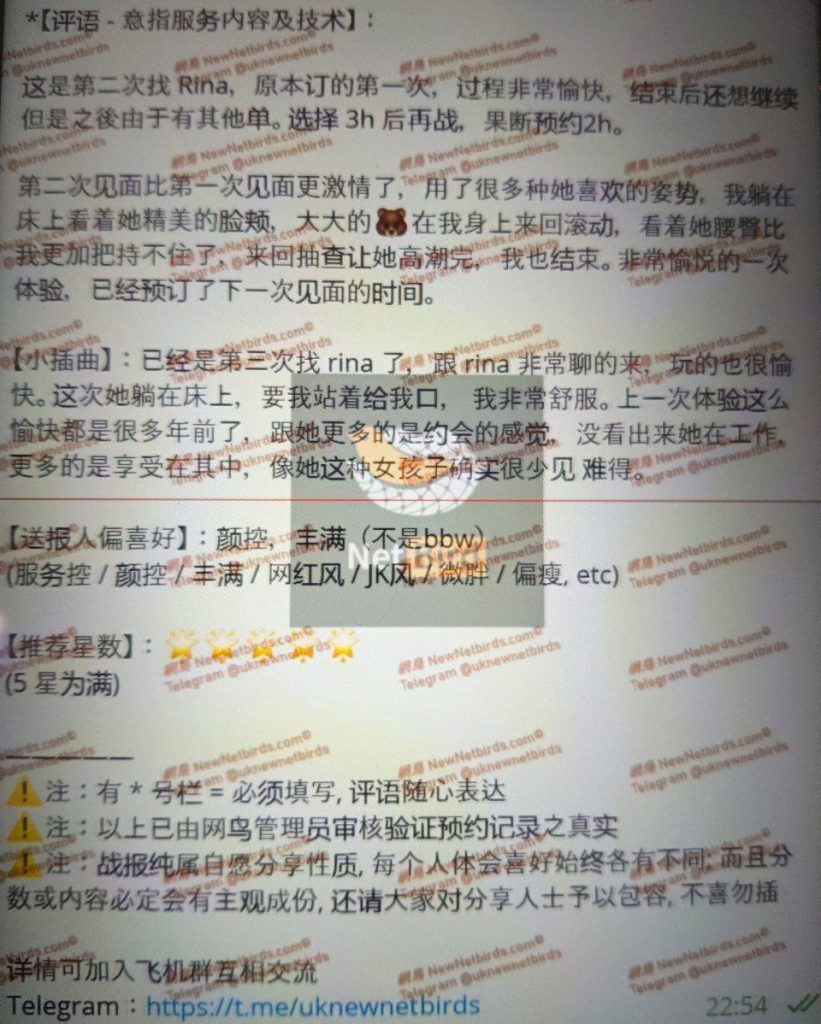 *【评语 - 意指服务内容及技术】：
这是第二次找 Rina，原本订的第一次，过程非常愉快，结束后还想继续
但是之後由于有其他单。选择 3h 后再战，果断预约2h。
第二次见面比第一次见面更激情了，用了很多种她喜欢的姿势，我躺在
床上看着她精美的脸颊，大大的🐻在我身上来回滚动，看着她腰臀比
我更加把持不住了，来回抽查让她高潮完，我也结束。非常愉悦的一次
体验，已经预订了下一次见面的时间。
【小插曲】：已经是第三次找 rina 了，跟 rina 非常聊的来，玩的也很愉
快。这次她躺在床上，要我站着给我口，我非常舒服。上一次体验这么
愉快都是很多年前了，跟她更多的是约会的感觉，没看出来她在工作，
更多的是享受在其中，像她这种女孩子确实很少见 难得。
【送报人偏喜好】：颜控，丰满（不是bbw）
(服务控 / 颜控 / 丰满 / 网红风 / JK风 / 微胖 / 偏瘦, etc)
【推荐星数】：🌟🌟🌟🌟🌟
(5 星为满)
⚠️注：有 * 号栏 = 必须填写, 评语随心表达
⚠️注：以上已由网鸟管理员审核验证预约记录之真实
⚠️注：战报纯属自愿分享性质, 每个人体会喜好始终各有不同; 而且分
数或内容必定会有主观成份, 还请大家对分享人士予以包容, 不喜勿插
详情可加入飞机群互相交流
Telegram：https://t.me/uknewnetbirds
22:54
Net Bird
網鳥 NewNetbirds.com©
Telegram @uknewnetbirds